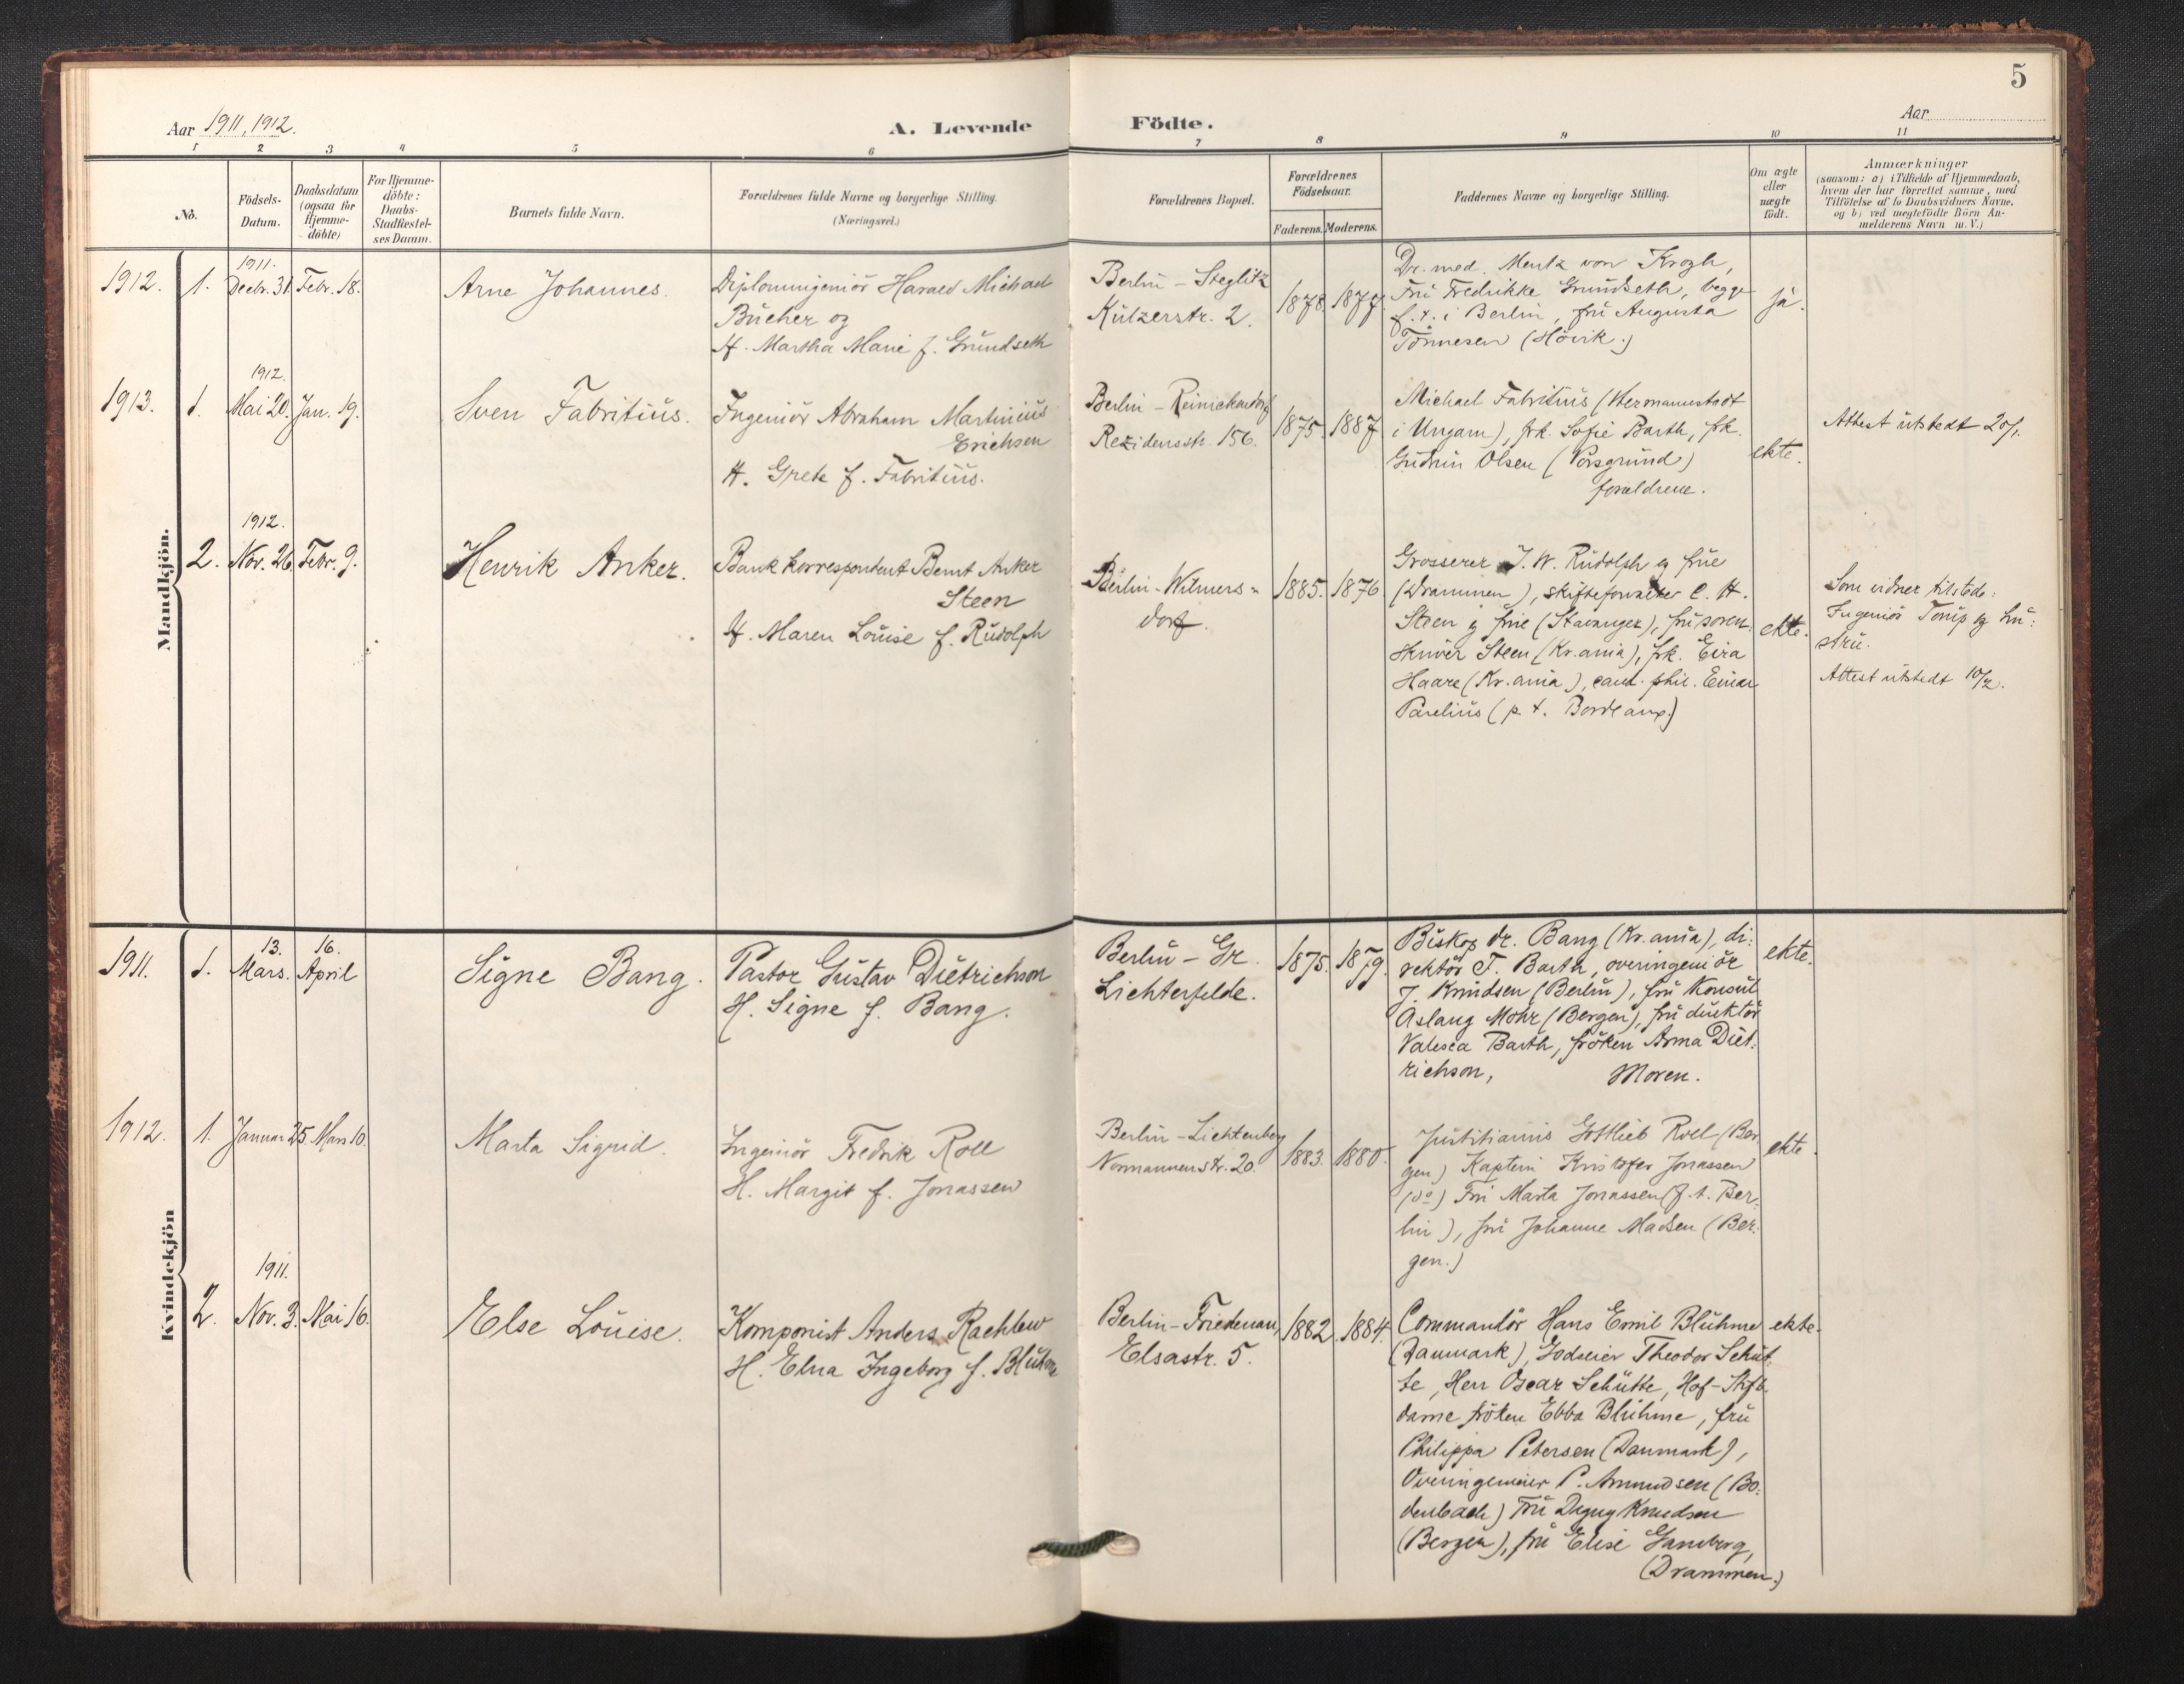 5
Aar 1911, 1912.
A. Levende
Födte.
Aar
1 2 3 4 5 6 7 8 9 10 11
No.
Födsels-
Datum.
Daabsdatum
(ogsaa for
Hjemme-
döbte)
For Hjemme-
döbte:
Daabs-
Stadfæstel-
ses Datum.
Barnets fulde Navn.
Forældrenes fulde Navne og borgerlige Stilling.
(Næringsvei.)
Forældrenes Bopæl.
Forældrenes
Födselsaar.
Faderens. Moderens.
Faddernes Navne og borgerlige Stilling.
Om ægte
eller
uægte
födt.
Anmærkninger
(saasom: a) i Tilfælde af Hjemmedaab,
hvem der har forrettet samme, med
Tilföielse af to Daabsvidners Navne,
og b) ved uægtefödte Börn An-
melderens Navn m. V.)
Mandkjön.
1912. 1.
1911.
Decbr. 31. Febr. 18.
Arne Johannes.
Diplomingeniör Harald Michael
Bücher og
H. Martha Marie f. Grundseth
Berlin - Steglitz
Külzerstr. 2.
1878. 1877.
Dr. med. Mentz von Krogh,
Fru Fredrikke Grundseth, begge
f. t. i Berlin, fru Augusta
Tönnesen (Hövik.)
ja.
1913. 1.
1912.
Mai 20. Jan. 19.
Sven Fabritius.
Ingeniör Abraham Martinius
Erichsen
H. Grete f. Fabritius.
Berlin - Reinickendorf
Residensstr. 156.
1875. 1887
Michael Fabritius (Hermannstadt
i Ungarn), frk. Sofie Barth, frk.
Gudrun Olsen (Porsgrund)
forældrene.
ekte.
Attest utstedt 20/1.
2.
1912.
Nov. 26. Febr. 9.
Henrik Anker.
Bankkorrespondent Bernt Anker
Steen
H. Maren Louise f. Rudolph
Berlin - Wilmers-
dorf.
1885. 1876.
Grosserer J. W. Rudolph og frue
(Drammen), skifteforvalter C. H.
Steen og frue (Stavanger), fru soren-
skriver Steen (Kr.ania), frk. Eira
Haare (Kr.ania), cand. phil. Einar
Parelius (p. t. Bordeaux.)
ekte.
Som vidner tilstede:
Ingeniör Torup og hu-
stru.
Attest utstedt 10/2.
Kvindekjön
1911. 1.
13. 16.
Mars. April
Signe Bang.
Pastor Gustav Dietrichson
H. Signe f. Bang.
Berlin - Gr.
Lichterfelde.
1875. 1879.
Biskop dr. Bang (Kr.ania), di-
rektör F. Barth, overingeniör
J. Knudsen (Berlin), fru Konsul
Aslaug Mohr (Bergen), fru direktör
Valesca Barth, fröken Anna Diet-
richson, Moren.
ekte.
1912. 1. Januar 25. Mars 10.
Marta Sigrid.
Ingeniör Fredrik Roll
H. Margit f. Jonassen
Berlin - Lichtenberg
Normannenstr. 20.
1883. 1880.
Justitiarius Gottlieb Roll (Ber-
gen) Kaptein Kristofer Jonassen
(do) Fru Marta Jonassen (f. t. Ber-
lin), fru Johanne Madsen (Ber-
gen.)
ekte.
1911.
2. Nov. 3. Mai 16.
Else Louise.
Komponist Anders Rachlew
H. Elna Ingeborg f. Bluhme
Berlin - Friedenau,
Elsastr. 5.
1882. 1884.
Commandör Hans Emil Bluhme
(Danmark), Godseier Theodor Schüt-
te, Herr Oscar Schütte, Hof-Stift-
dame fröken Ebba Bluhme, fru
Philippa Petersen (Danmark),
Overingeniör P. Amundsen (Bo-
denbach) Fru Dagny Knudsen
(Bergen), fru Elise Gamborg,
(Drammen.)
ekte.